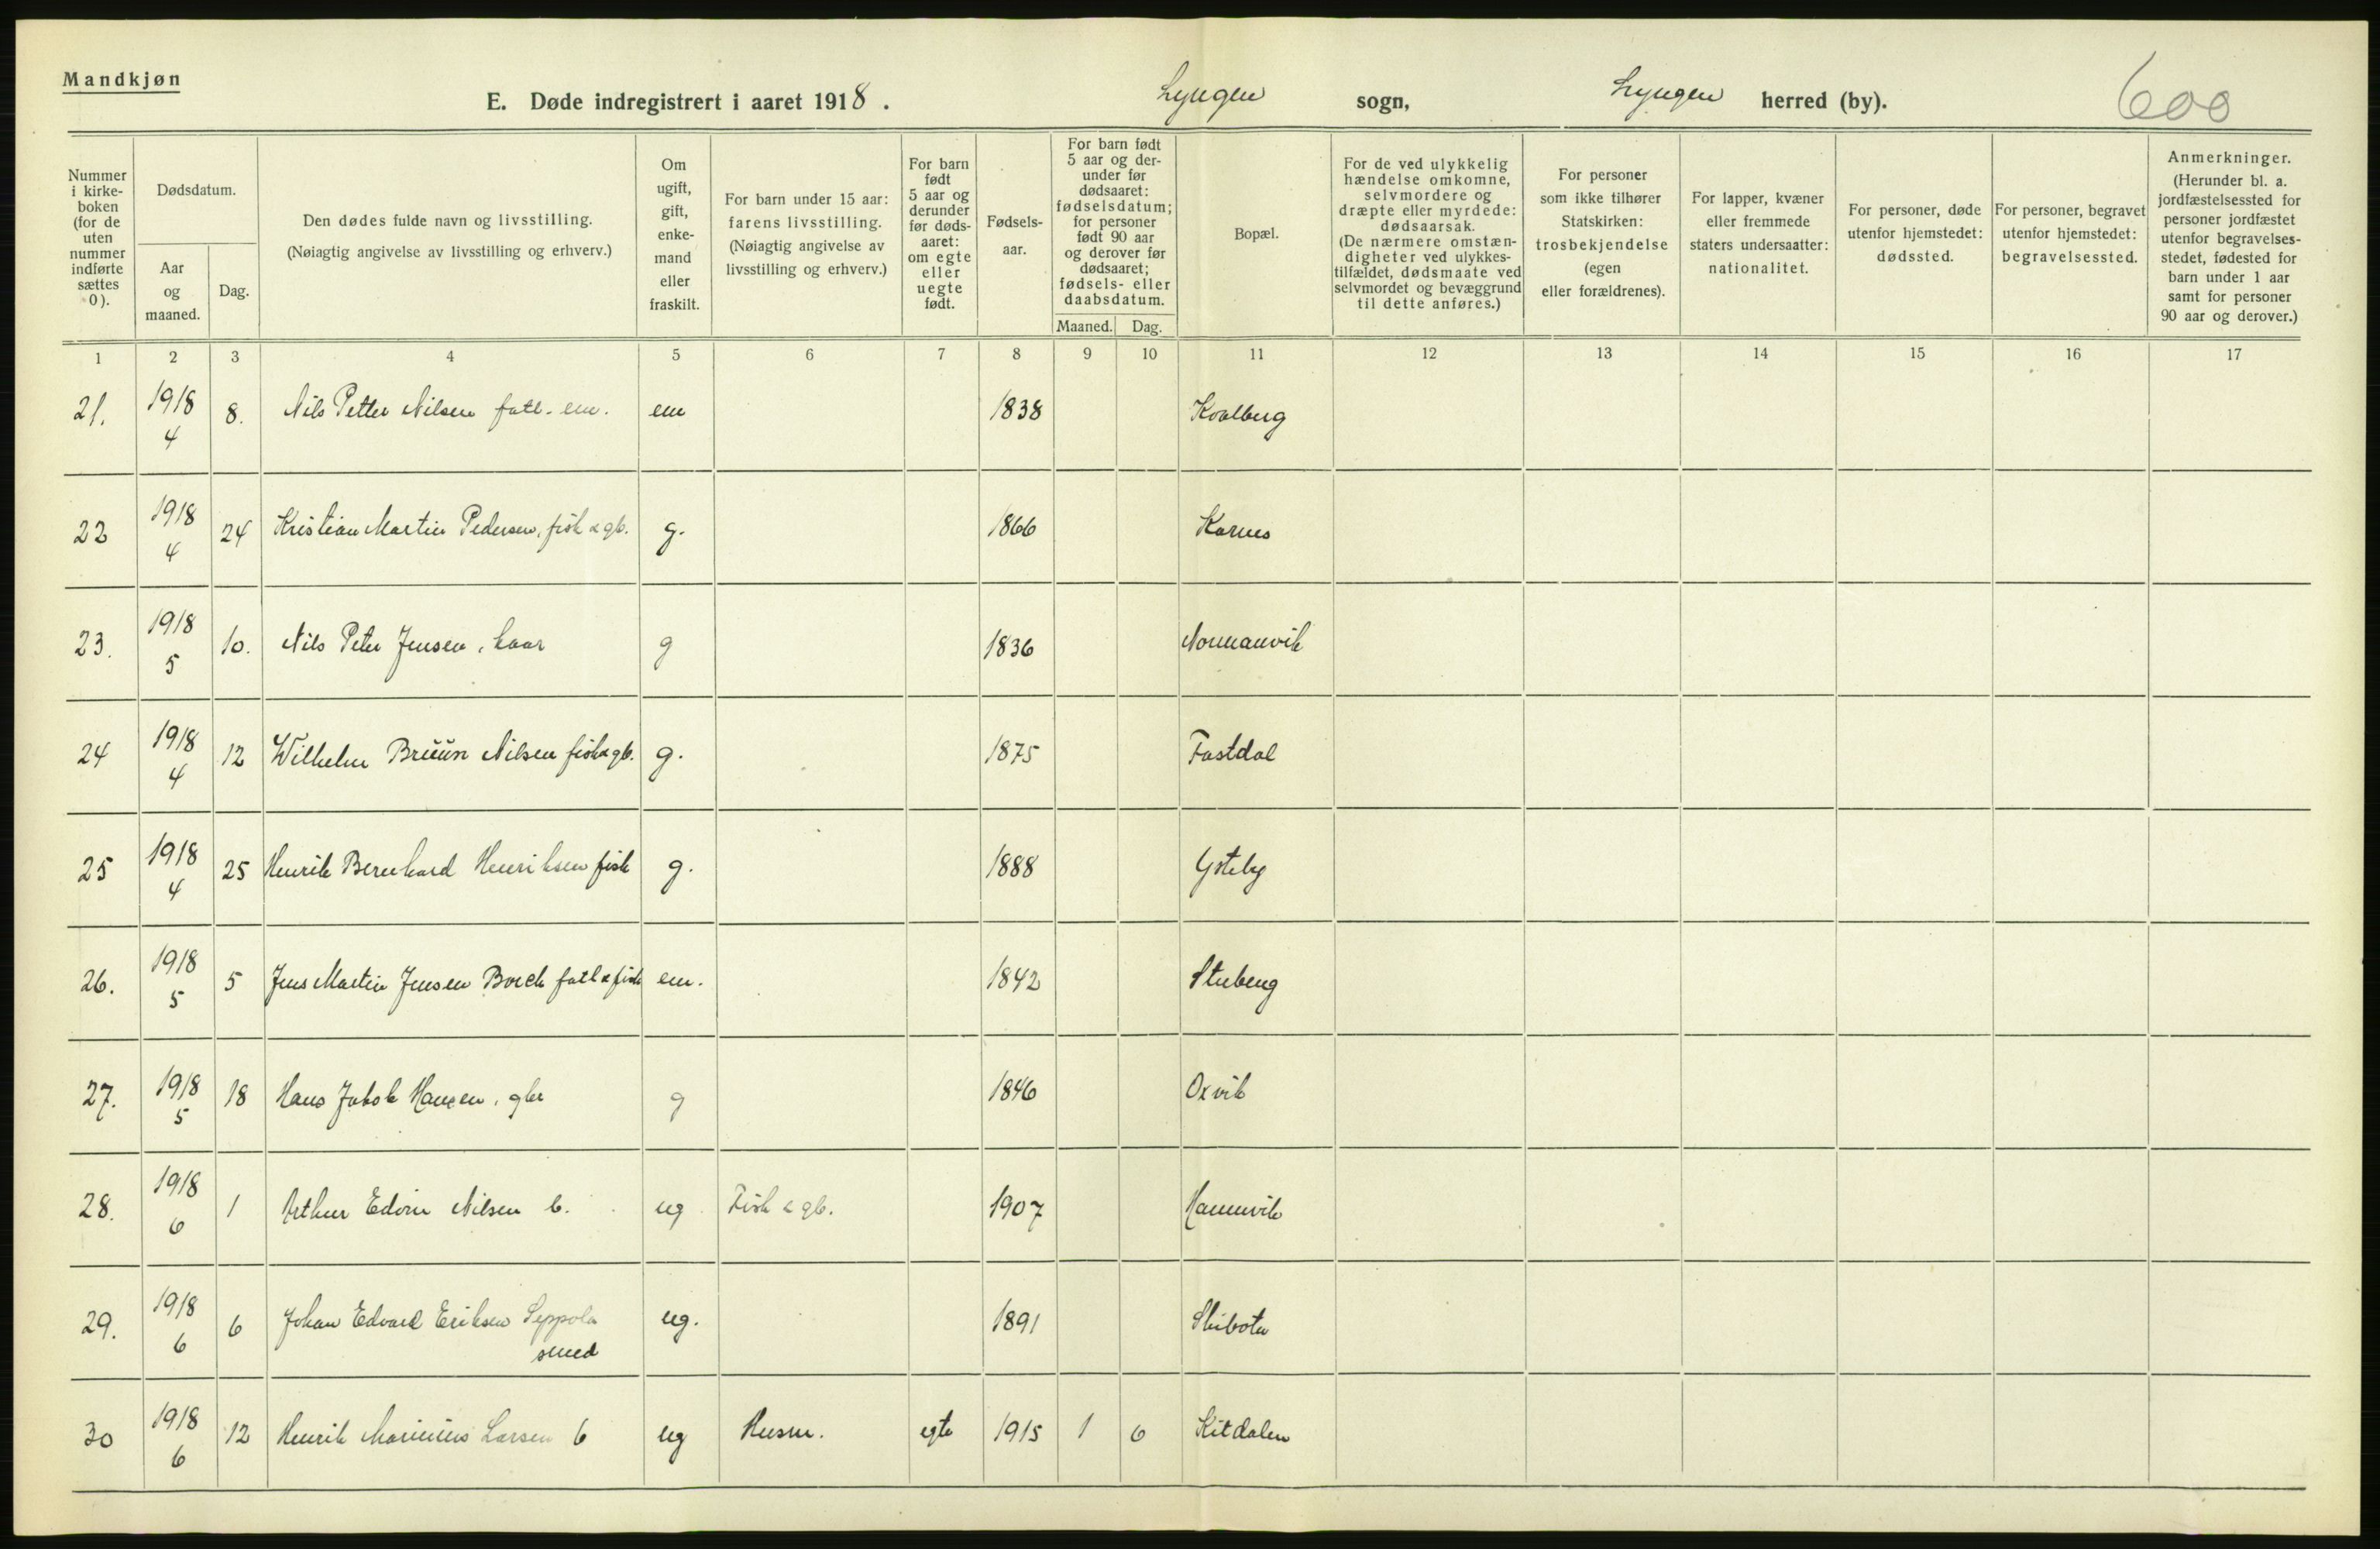 Mandkjøn
E. Døde indregistrert i aaret 1918. Lyngen sogn, Lyngen herred (by). 600
Nummer i kirke-boken (for de uten nummer indførte sættes 0).
Dødsdatum.
Aar og maaned.
Dag.
Den dødes fulde navn og livsstilling.
(Nøiagtig angivelse av livsstilling og erhverv.)
Om ugift, gift, enke-mand eller fraskilt.
For barn under 15 aar: farens livsstilling.
(Nøiagtig angivelse av livsstilling og erhverv.)
For barn født 5 aar og derunder før døds-aaret: om egte eller uegte født.
Fødsels-aar.
For barn født 5 aar og der-under før dødsaaret: fødselsdatum; for personer født 90 aar og derover før dødsaaret; fødsels- eller daabsdatum.
Maaned. Dag.
Bopæl.
For de ved ulykkelig hændelse omkomne, selvmordere og dræpte eller myrdede: dødsaarsak. (De nærmere omstæn-digheter ved ulykkes-tilfældet, dødsmaate ved selvmordet og bevæggrund til dette anføres.)
For personer som ikke tilhører Statskirken: trosbekjendelse (egen eller forældrenes).
For lapper, kvæner eller fremmede staters undersaatter: nationalitet.
For personer, døde utenfor hjemstedet: dødssted.
For personer, begravet utenfor hjemstedet: begravelsessted.
Anmerkninger. (Herunder bl. a. jordfæstelsessted for personer jordfæstet utenfor begravelses-stedet, fødested for barn under 1 aar samt for personer 90 aar og derover.)
1 2 3 4 5 6 7 8 9 10 11 12 13 14 15 16 17
21. 1918 4 8. Nils Petter Nilsen fatl. em. em 1838 Kvalberg
22 1918 4 24 Kristian Martin Pedersen, fisk & gb. g. 1866 Karnes
23. 1918 5 10. Nils Peter Jensen, kaar g 1836 Normanvik
24 1918 4 12 Wilhelm Brüün Nilsen fisk & gb. g. 1875 Fastdal
25 1918 4 25 Henrik Bernhard Henriksen fisk g. 1888 Ysteby
26. 1918 5 5 Jens Martin Jensen Borch fatl & fisk em. 1842 Stubeng
27. 1918 5 18 Hans Jakob Hansen, gbr g 1846 Oxvik
28. 1918 6 1 Arthur Edvin Nilsen b. ug Fisk & gb. 1907 Hamnvik
29. 1918 6 6 Johan Edvard Eriksen Seppola
smed ug. 1891 Skibotn
30 1918 6 12 Henrik Marinius Larsen b ug Husm. egte 1915 1 6 Kitdalen